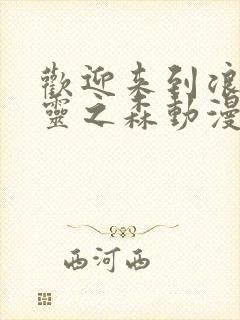 歡迎来到浪
靈之森動漫
西河西